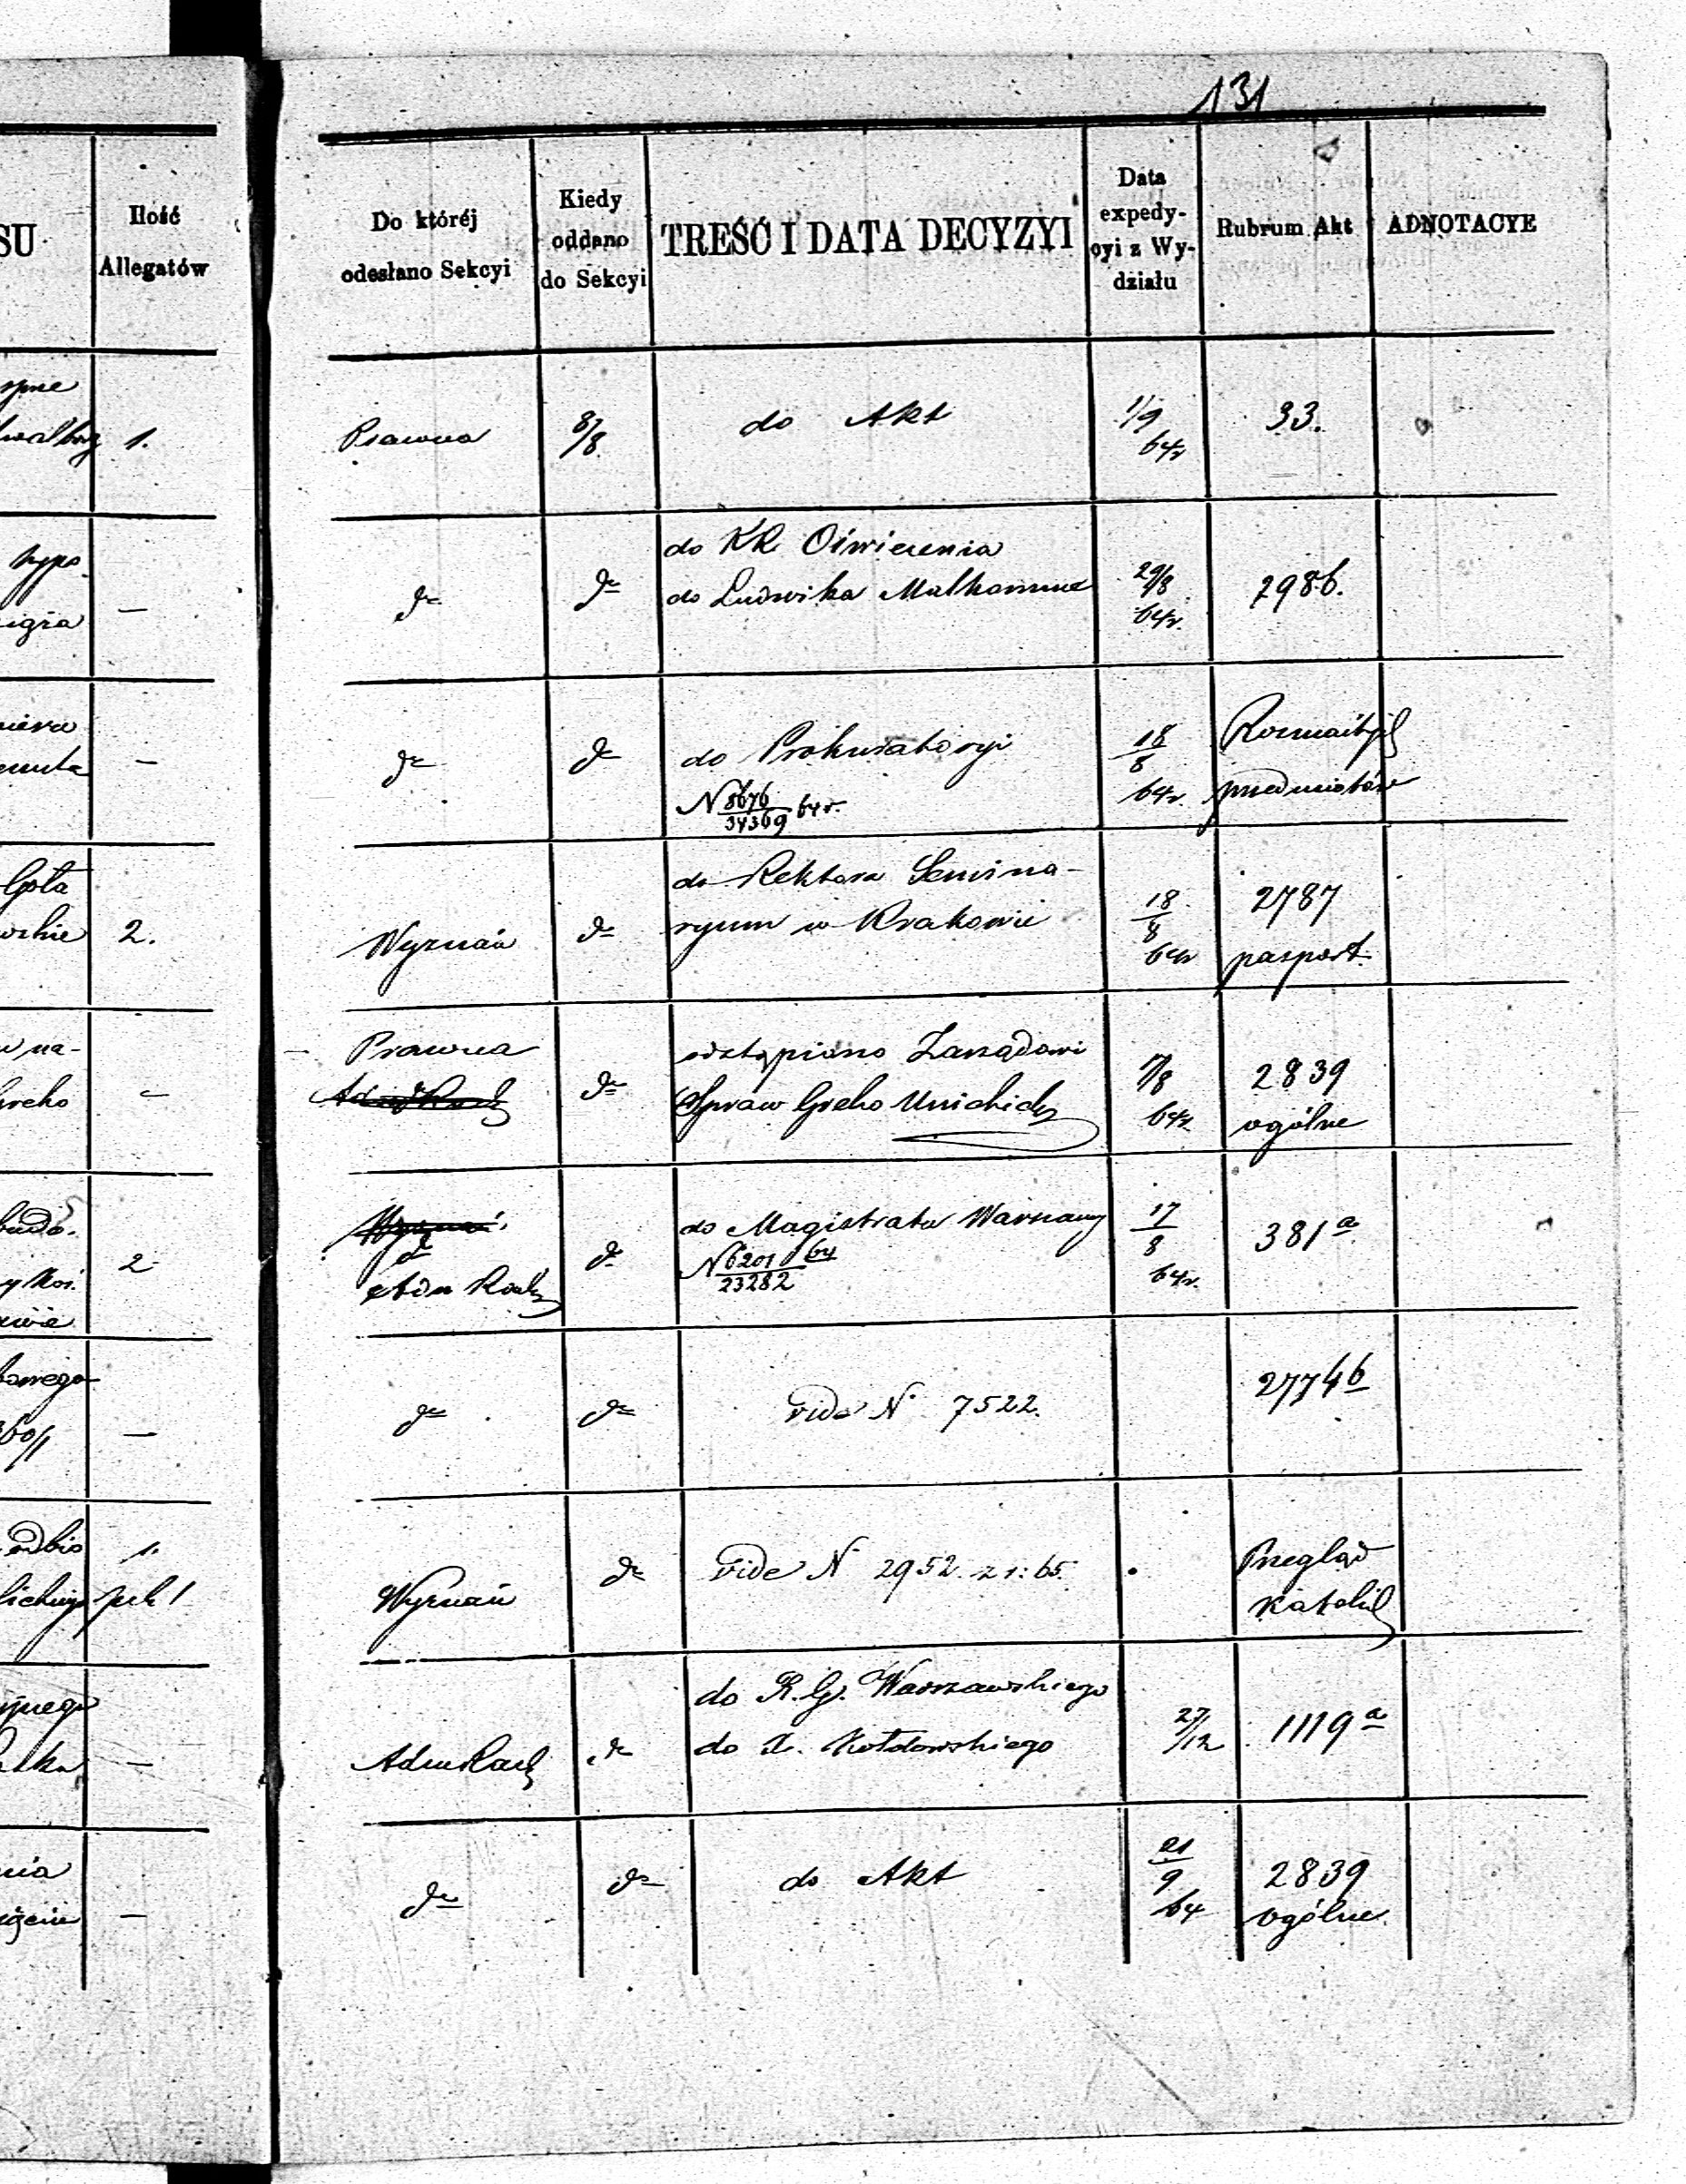 131
SU
Ilość
Allegatów
Do któréj
odesłano Sekcyi
Kiedy
oddano
do Sekcyi
TREŚĆ I DATA DECYZYI
Data
expedy-
cyi z Wy-
działu
Rubrum Akt
ADNOTACYE
1.
Prawna
8/8
do Akt
1/9
64r
33.
hypo
—
do
do
do KR Oświecenia
do Ludwika
29/8
64r.
2986.
—
do
do
do Prokuratoryi
N 8676/34369 64r.
18/8
64r.
Rozmaitych
przedmiotów
2.
Wyznań
do
do Rektora Semina-
ryum w Krakowie
18/8
64r
2787
pasport.
w na-
Greko
—
Prawna
do
odstąpiono Zarządowi
Spraw Greko Unickich
17/8
64r.
2839
ogólne
2
Wyznań
do
Adm Rach
do
do Magistratu Warszawy
N 6201/23282 64
17/8
64r.
381a
—
do
do
vide N 7522.
2774b
odbio
1.
Wyznań
do
vide N 2952 z r: 65.
Przegląd
Katolic
—
Adm Rach
do
do R. G. Warszawskiego
do X. Kotowskiego
27/12
1119a
—
do
do
do Akt
21/9
64
2839
ogólne.